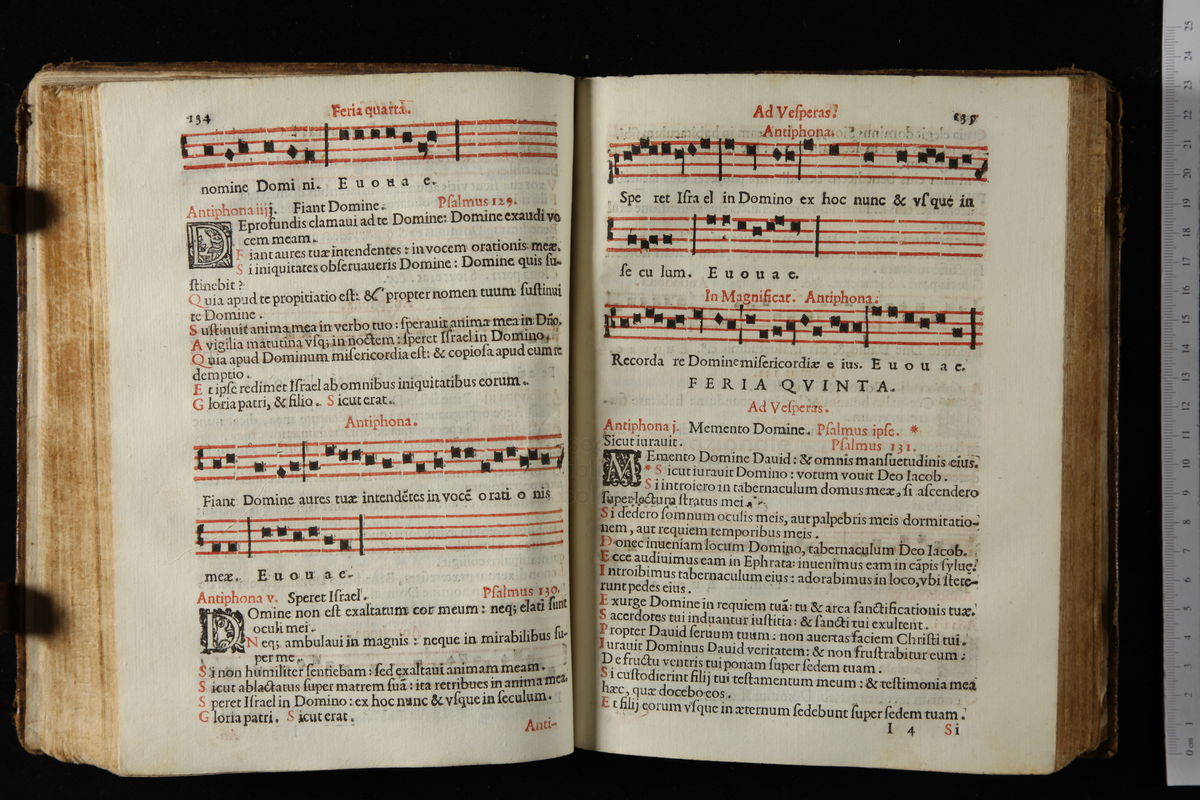 134
Feria quarta.
nomine Domi ni. E u o u a e.
Antiphona iiij. Fiant Domine. Psalmus 129.
DEprofundis clamaui ad te Domine: Domine exaudi vo
cem meam.
Fiant aures tuæ intendentes: in vocem orationis meæ.
Si iniquitates obseruaueris Domine: Domine quis su-
stinebit?
Quia apud te propitiatio est: & propter nomen tuum sustinui
te Domine.
Sustinuit anima mea in verbo tuo: sperauit anima mea in Dño.
A vigilia matutina vsq; in noctem: speret Israel in Domino.
Quia apud Dominum misericordia est: & copiosa apud eum re
demptio.
Et ipse redimet Israel ab omnibus iniquitatibus eorum.
Gloria patri, & filio. Sicut erat.
Antiphona.
Fiant Domine aures tuæ intendẽtes in vocẽ o rati o nis
meæ. E u o u a e.
Antiphona v. Speret Israel. Psalmus 130.
DOmine non est exaltatum cor meum: neq; elati sunt
oculi mei.
Neq; ambulaui in magnis: neque in mirabilibus su-
per me.
Si non humiliter sentiebam: sed exaltaui animam meam.
Sicut ablactatus super matrem suã: ita retribues in anima mea.
Speret Israel in Domino: ex hoc nunc & vsque in seculum.
Gloria patri. Sicut erat.
Anti-
Ad Vesperas.
135
Antiphona.
Spe ret Isra el in Domino ex hoc nunc & vsque in
se cu lum. E u o u a e.
In Magnificat. Antiphona.
Recorda re Domine misericordiæ e ius. E u o u a e.
FERIA QVINTA.
Ad Vesperas.
Antiphona j. Memento Domine. Psalmus ipse. *
Sicut iurauit. Psalmus 131.
MEmento Domine Dauid: & omnis mansuetudinis eius.
* Sicut iurauit Domino: votum vouit Deo Iacob.
Si introiero in tabernaculum domus meæ, si ascendero
super lectum stratus mei.
Si dedero somnum oculis meis, aut palpebris meis dormitatio-
nem, aut requiem temporibus meis.
Donec inueniam locum Domino, tabernaculum Deo Iacob.
Ecce audiuimus eam in Ephrata: inuenimus eam in cãpis syluę.
Introibimus tabernaculum eius: adorabimus in loco, vbi stete-
runt pedes eius.
Exurge Domine in requiem tuã: tu & arca sanctificationis tuæ.
Sacerdotes tui induantur iustitia: & sancti tui exultent.
Propter Dauid seruum tuum: non auertas faciem Christi tui.
Iurauit Dominus Dauid veritatem: & non frustrabitur eum:
De fructu ventris tui ponam super sedem tuam.
Si custodierint filij tui testamentum meum: & testimonia mea
hæc, quæ docebo eos.
Et filij eorum vsque in æternum sedebunt super sedem tuam.
I 4 Si